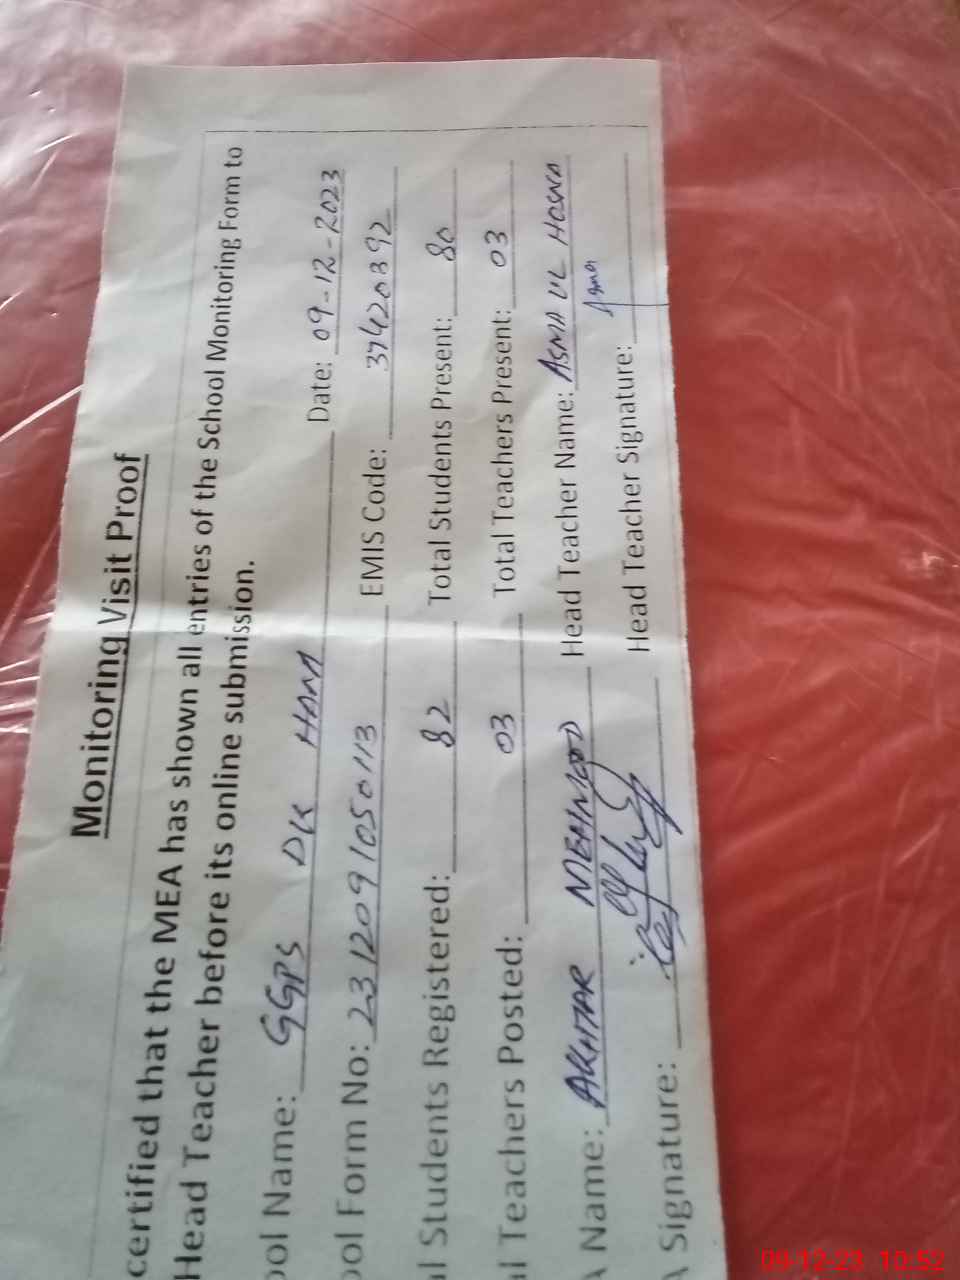 Monitoring Visit Proof
certified that the MEA has shown all entries of the School Monitoring Form to
Head Teacher before its online submission.
ool Name: GGPS DK HAM Date: 09-12-2023
ool Form No: 2312091050113 EMIS Code: 37420392
al Students Registered: 82 Total Students Present: 80
al Teachers Posted: 03 Total Teachers Present: 03
A Name: AKHTAR MEHMOOD Head Teacher Name: ASMA UL HOSNA
A Signature: Head Teacher Signature: Asma
09-12-23 10:52